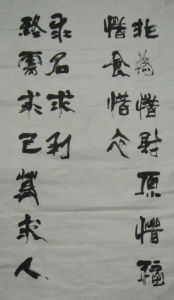 惜食惜衣
非為惜財原惜福
求名求利
終需求己莫求人